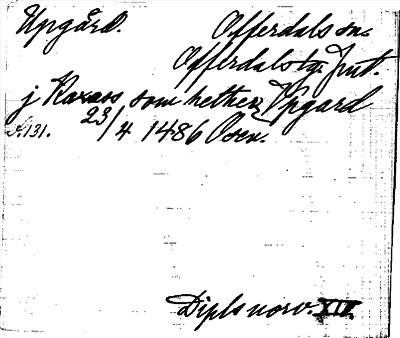 Upgård. Offerdals sn.
Offerdals tg. Jmt.
j Raxaas som hether Vpgard
S. 131. 23/4 1486 Osen.
Dipl. norv. XIV.